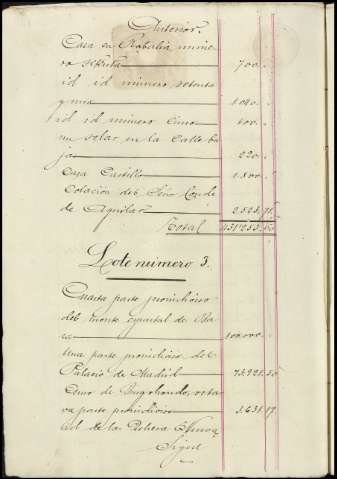 Anterior.
Casa en Rabalia nume
ro setenta 700..
id id número setenta
y una 1000..
id id número cinco 600..
un solar en la calle ba
ja 220..
Casa Castillo 1.800..
Colación del Señor Conde
de Aguilar 2.525.75
Total 431.253.
Lote número 3.
Cuarta parte proindiviso
del monte cuartal de
100.000..
Una parte proindiviso del
Palacio de Madrid 73.921.50
Censo de Burgohondo, octa
va parte proindiviso 3.631.17
id de la
Sigue